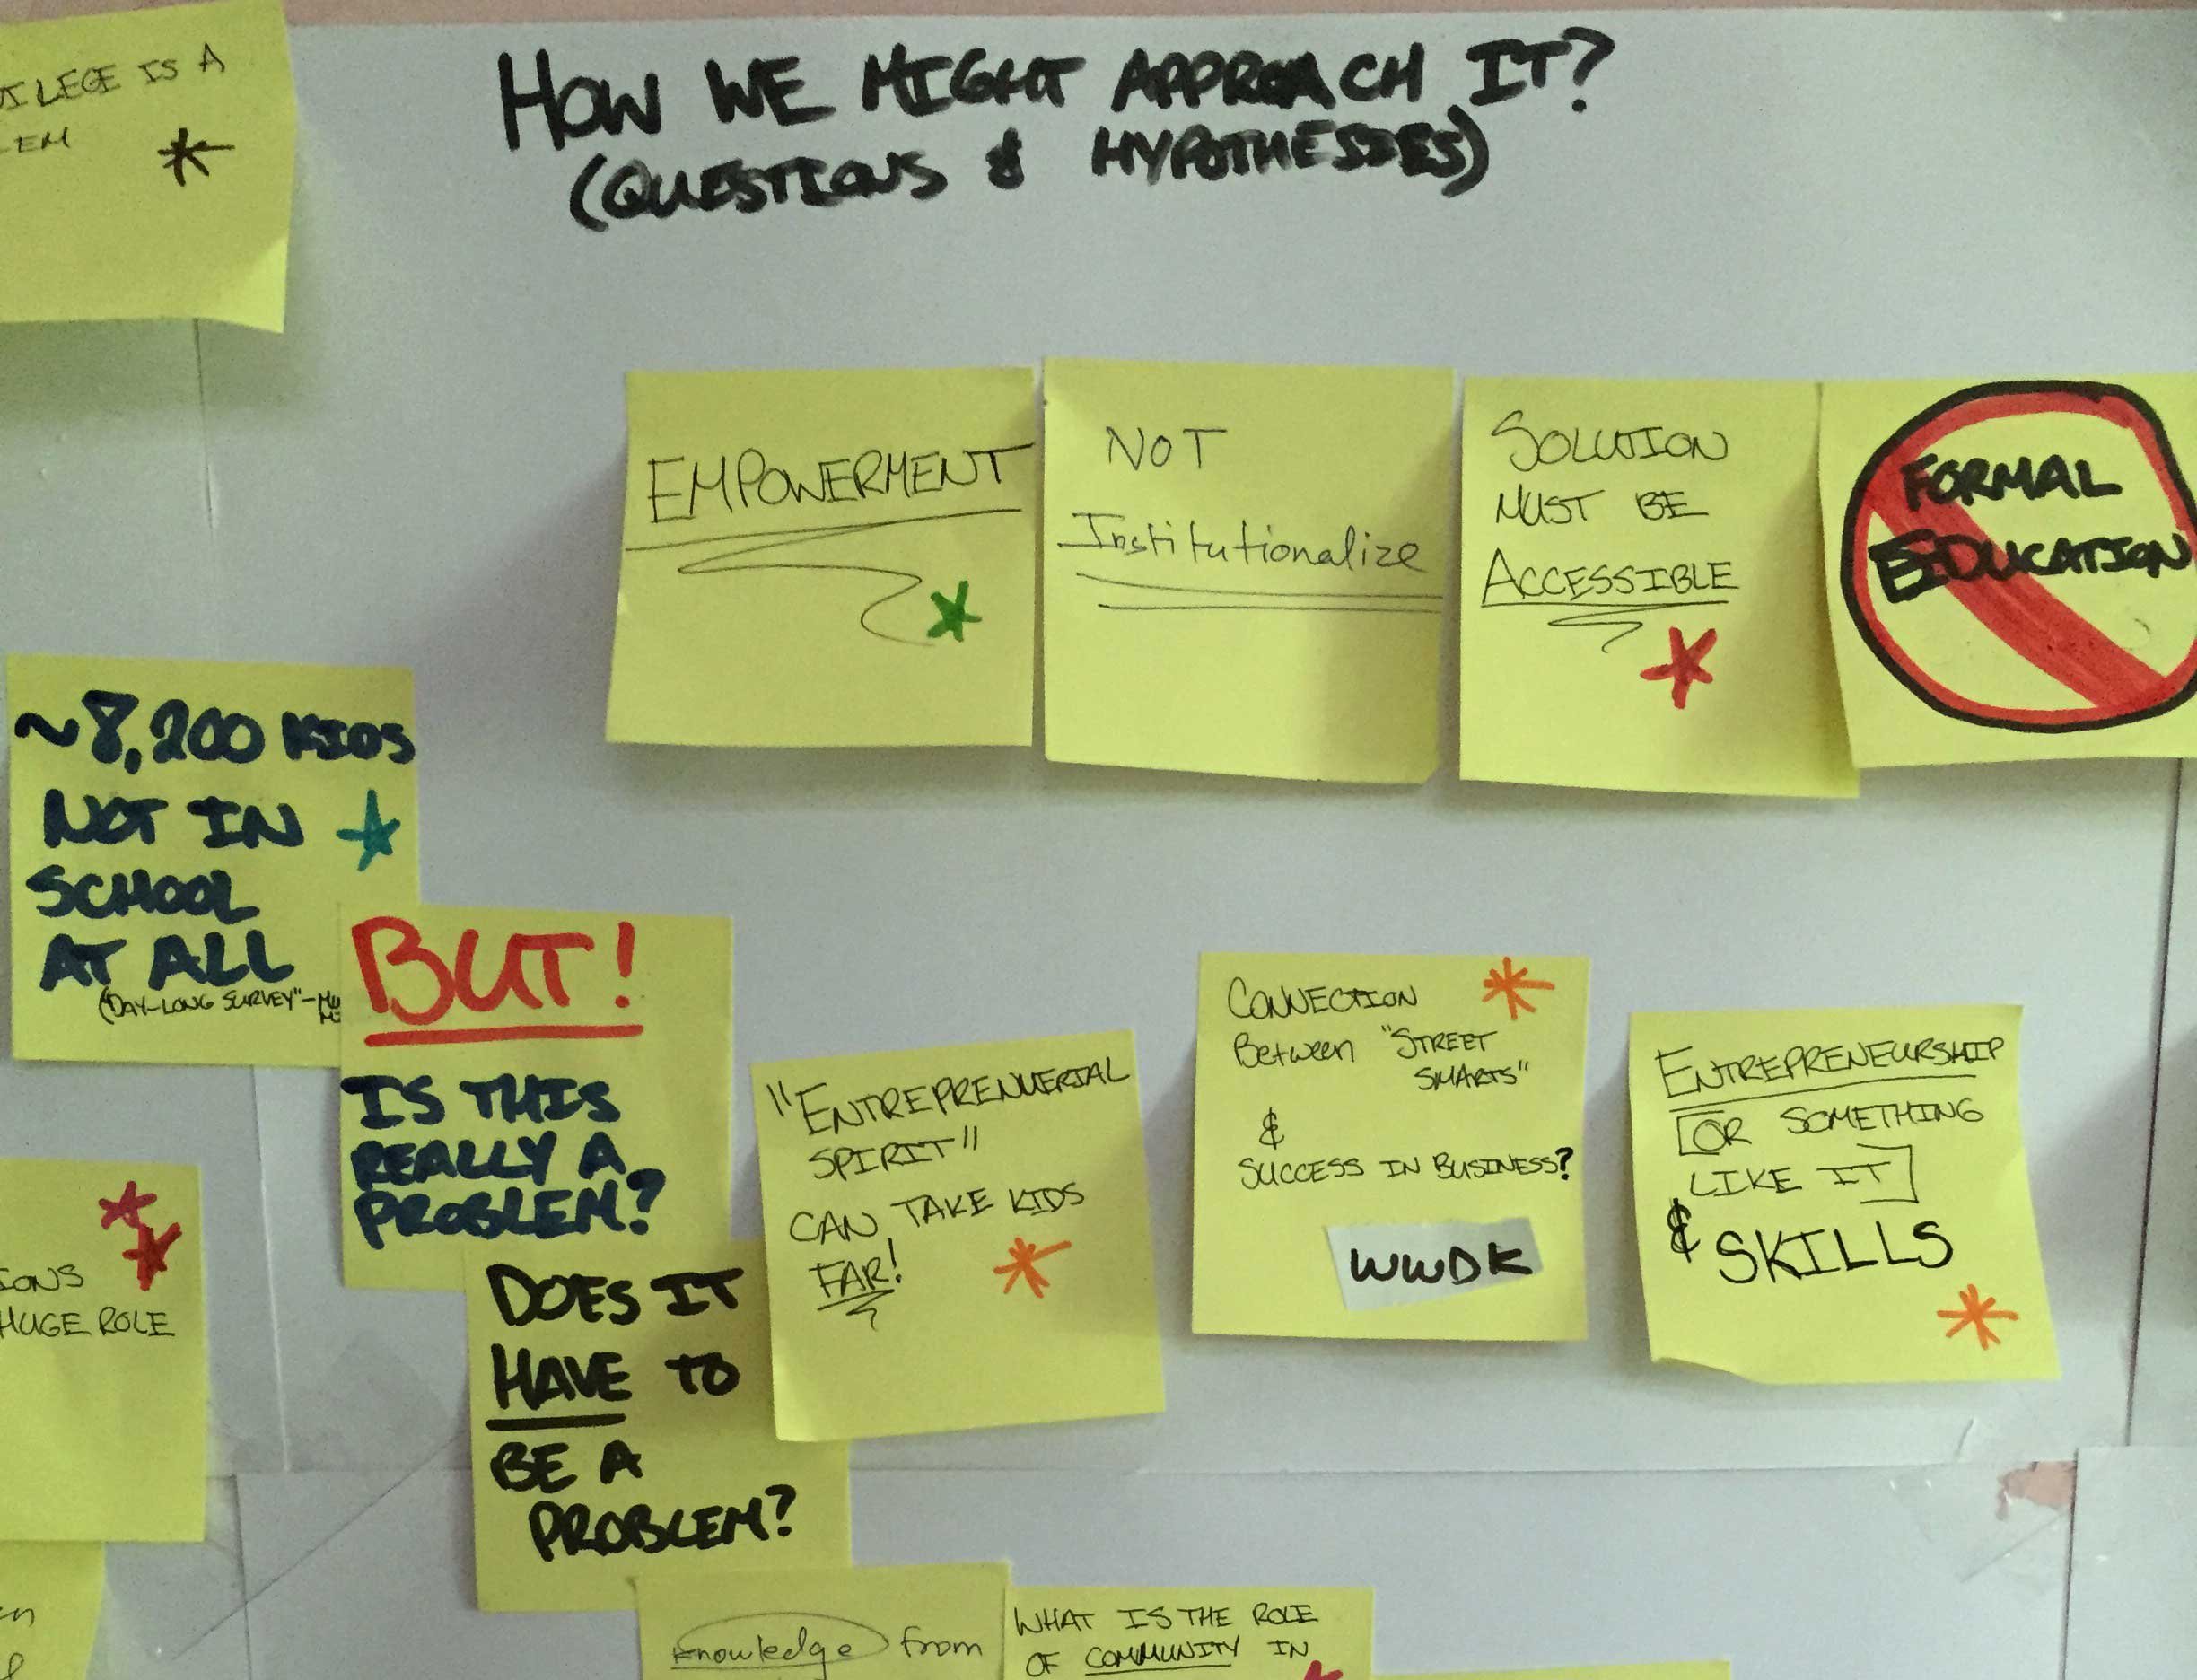 HOW WE MIGHT APPROACH IT?
(QUESTIONS & HYPOTHESES)
IS A
EMPOWERMENT
NOT
Institutionalize
SOLUTION
MUST BE
ACCESSIBLE
FORMAL
EDUCATION
~8,200 KIDS
NOT IN
SCHOOL
AT ALL
("DAY-LONG SURVEY"-
BUT!
IS THIS
REALLY A
PROBLEM?
DOES IT
HAVE TO
BE A
PROBLEM?
"ENTREPRENUERIAL
SPIRIT"
CAN TAKE KIDS
FAR!
CONNECTION
Between "STREET
SMARTS"
&
SUCCESS IN BUSINESS?
WWDK
ENTREPRENEURSHIP
[OR SOMETHING
LIKE IT]
& SKILLS
HUGE ROLE
knowledge from
WHAT IS THE ROLE
OF COMMUNITY IN